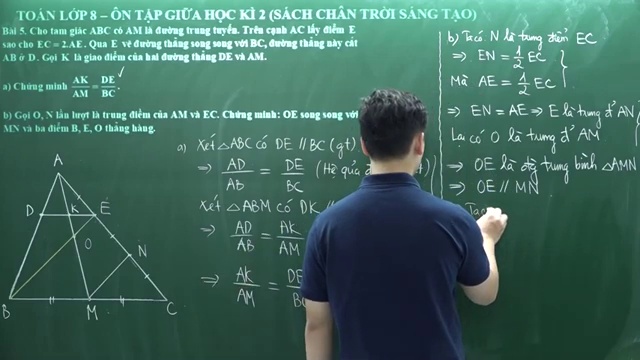 TOÁN LỚP 8 – ÔN TẬP GIỮA HỌC KÌ 2 (SÁCH CHÂN TRỜI SÁNG TẠO)
Bài 5. Cho tam giác ABC có AM là đường trung tuyến. Trên cạnh AC lấy điểm E
sao cho EC = 2.AE. Qua E vẽ đường thẳng song song với BC, đường thẳng này cắt
AB ở D. Gọi K là giao điểm của hai đường thẳng DE và AM.
a) Chứng minh AK/AM = DE/BC
b) Gọi O, N lần lượt là trung điểm của AM và EC. Chứng minh: OE song song với
MN và ba điểm B, E, O thẳng hàng.
A
D
K
E
O
N
B
M
C
a) Xét △ABC có DE // BC (gt)
⇒ AD/AB = DE/BC (Hệ quả
Xét △ABM có DK //
⇒ AD/AB = AK/AM
⇒ AK/AM = DE
b) Ta có N là trung điểm EC
⇒ EN = 1/2 EC
Mà AE = 1/2 EC
⇒ EN = AE ⇒ E là trung đ² AN
Lại có O là trung đ² AM
⇒ OE là đg trung bình △AMN
⇒ OE // MN